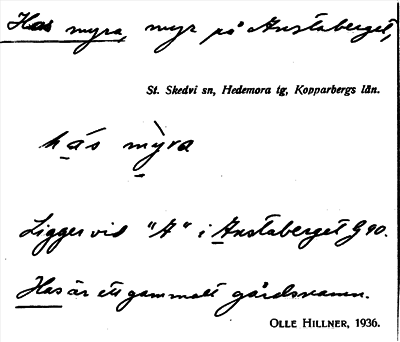 Has myra, myr på Anstaberget,
St. Skedvi sn, Hedemora tg, Kopparbergs län.
hás mỳra
Ligger vid "A" i Anstaberget G 90.
Has är ett gammalt gårdsnamn.
OLLE HILLNER, 1936.